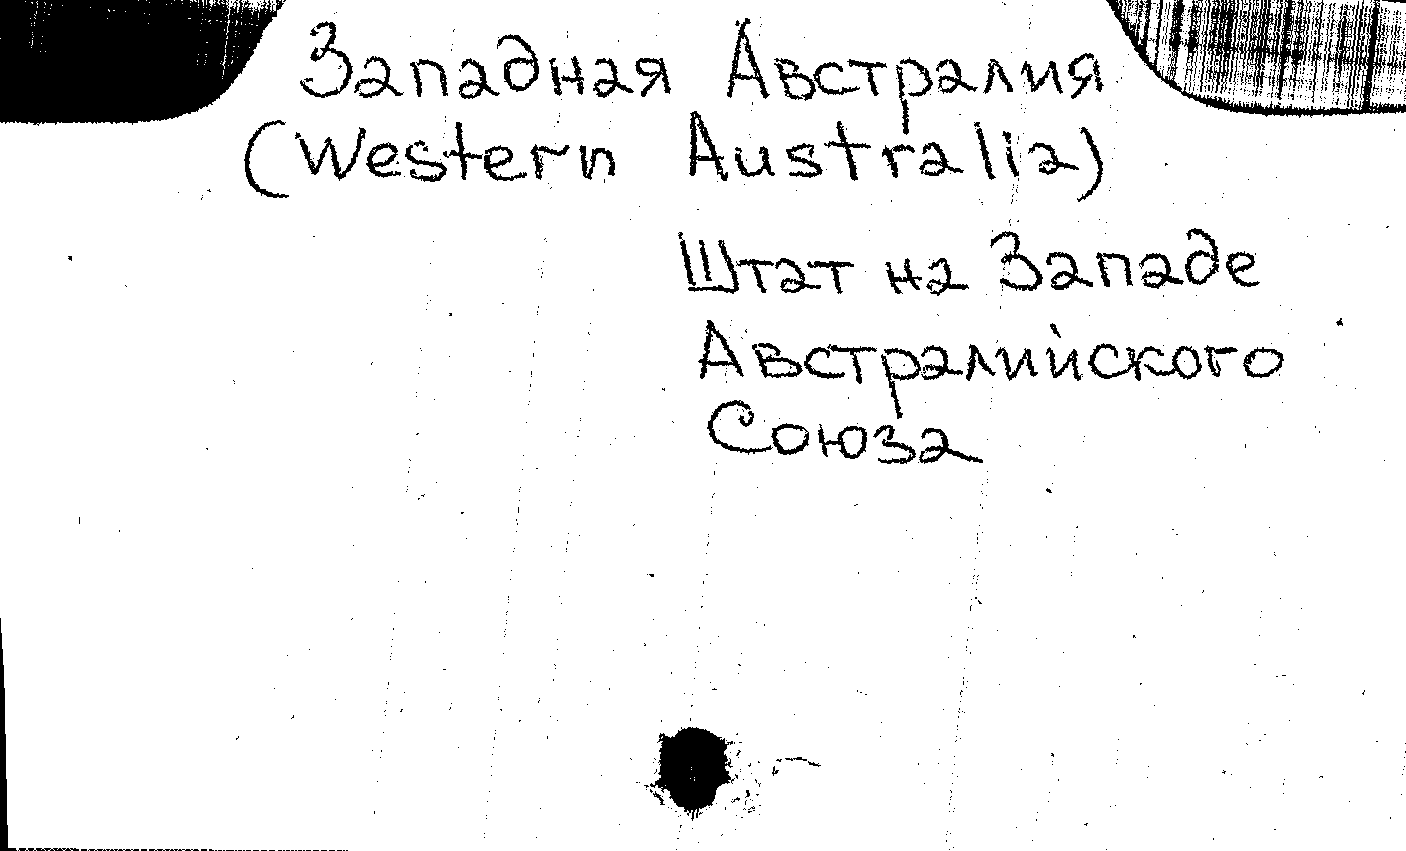 Западная Австралия
(Western Australia)
Штат на Западе
Австралийского
Союза